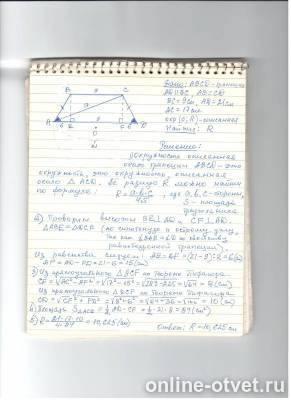 Дано: ABCD - трапеция
AD||BC, AB=CD
BC=9см, AD=21см
AC=17см
окр(O,R)-описанная
Найти: R
B 9 C
A 6 E F 6 D
O
Решение:
1) Окружность описанная
около трапеции ABCD - это
окружность, описанная
около △ACD, ее радиус R можно найти
по формуле: R = a·b·c/4S, где a,b,c - стороны,
S - площадь
треугольника
2) Проведем высоты BE⊥AD и CF⊥AD
△ABE=△DCF (по гипотенузе и острому углу,
так как ∠BAE=∠D по свойству
равнобедренной трапеции)
Из равенства следует: AE=FD=(21-9):2=6(см)
AF=AD-FD=21-6=15(см)
3) Из прямоугольного △ACF по теореме Пифагора
CF=√AC²-AF²=√17²-15²=√289-225=√64=8(см)
Из прямоугольного △DCF по теореме Пифагора
CD=√CF²+FD²=√8²+6²=√64+36=√100=10(см)
4) Площадь S ADC=1/2 AD·CF=1/2·21·8=84(см²)
5) R=21·17·10/4·84=10,625(см)
Ответ: R=10,625см
online-otvet.ru